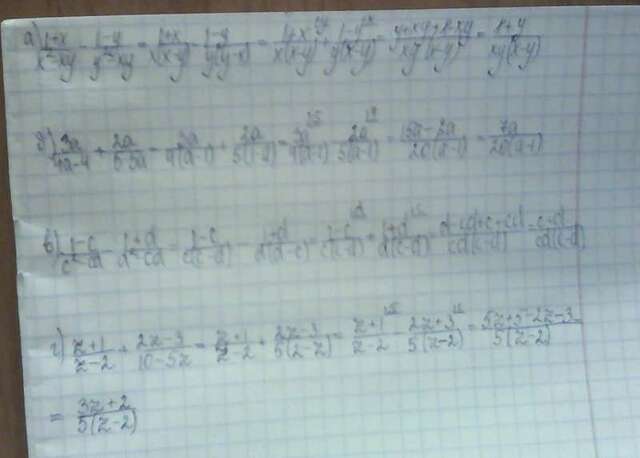 а) (1+x)/(x²-xy) - (1-y)/(y²-xy) = (1+x)/(x(x-y)) - (1-y)/(y(y-x)) = (1+x)/(x(x-y)) + (1-y)/(y(x-y)) = (y+xy+x-xy)/(xy(x-y)) = (x+y)/(xy(x-y))
б) 3a/(4a-4) + 2a/(5-5a) = 3a/(4(a-1)) + 2a/(5(1-a)) = 3a/(4(a-1)) - 2a/(5(a-1)) = (15a-8a)/(20(a-1)) = 7a/(20(a-1))
в) (1-c)/(c²-cd) - (1+d)/(d²-cd) = (1-c)/(c(c-d)) - (1+d)/(d(d-c)) = (1-c)/(c(c-d)) + (1+d)/(d(c-d)) = (d-cd+c+cd)/(cd(c-d)) = (c+d)/(cd(c-d))
г) (z+1)/(z-2) + (2z-3)/(10-5z) = (z+1)/(z-2) + (2z-3)/(5(2-z)) = (z+1)/(z-2) - (2z+3)/(5(z-2)) = (5z+5-2z-3)/(5(z-2)) =
= (3z+2)/(5(z-2))